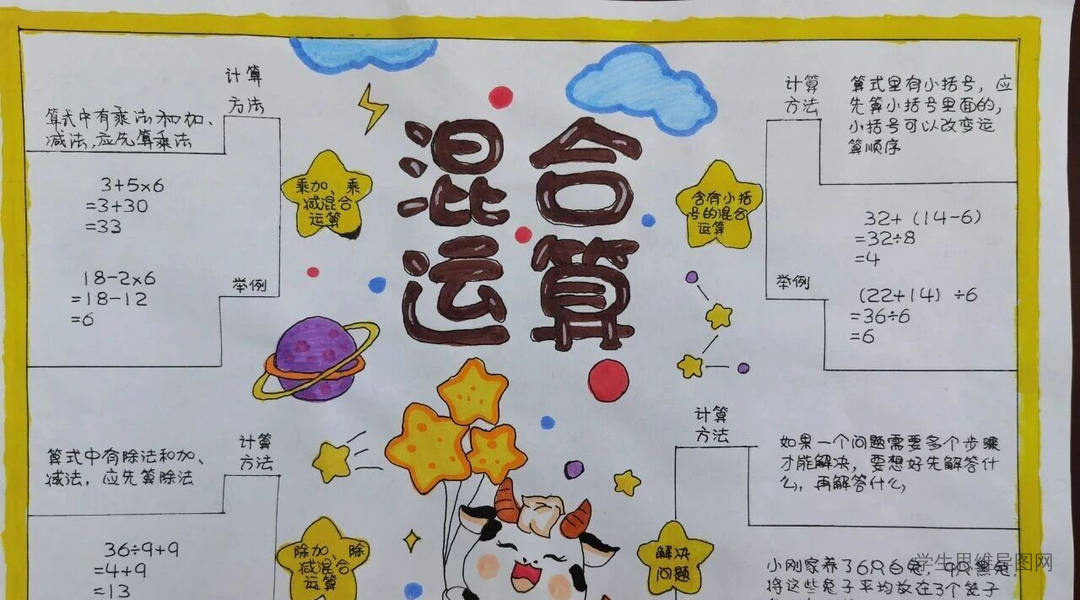 混合
运算
计算
方法
算式中有乘法和加、
减法,应先算乘法
3+5×6
=3+30
=33
18-2×6
=18-12
=6
举例
乘加、乘
减混合
运算
计算
方法
算式里有小括号,应
先算小括号里面的,
小括号可以改变运
算顺序
含有小括
号的混合
运算
32+(14-6)
=32÷8
=4
举例
(22+14)÷6
=36÷6
=6
计算
方法
算式中有除法和加、
减法,应先算除法
36÷9+9
=4+9
=13
除加、除
减混合
运算
计算
方法
如果一个问题需要多个步骤
才能解决,要想好先解答什
么,再解答什么
解决
问题
小刚家养了6只白兔
将这些兔子平均放在3个笼子
学生思维导图网